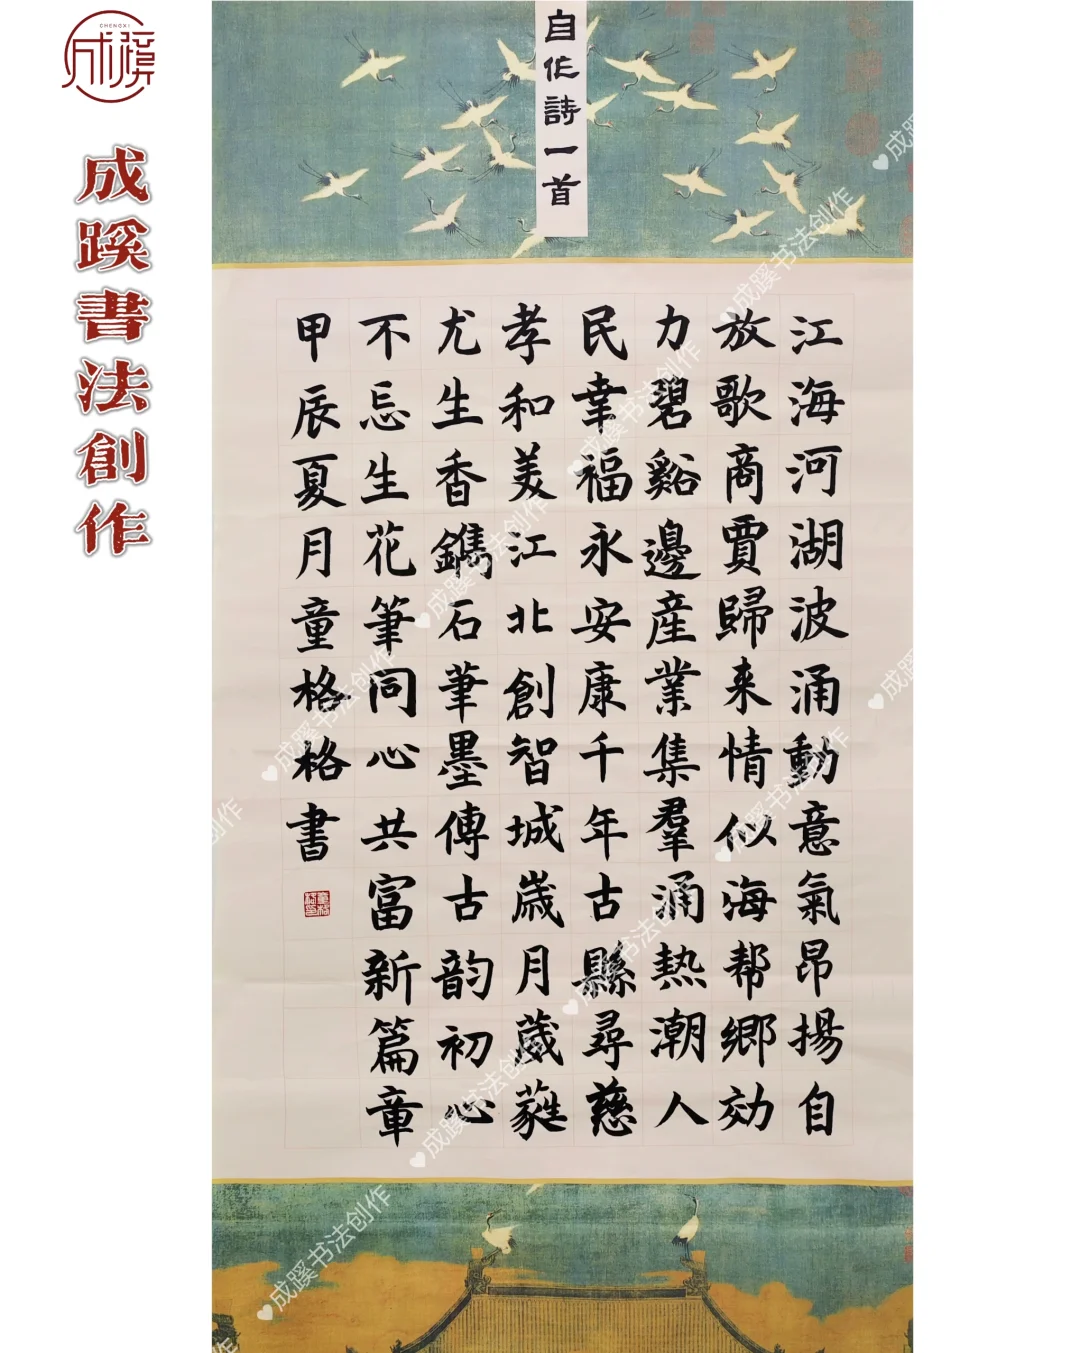 CHENGXI
成蹊
成蹊書法創作
自作詩一首
江海河湖波涌動意氣昂揚自
放歌商賈歸来情似海帮郷効
力碧谿邊産業集羣涌熱潮人
民幸福永安康千年古縣尋慈
孝和美江北創智城歳月葳蕤
尤生香鐫石筆墨傳古韵初心
不忘生花筆同心共富新篇章
甲辰夏月童格格書
成蹊书法创作